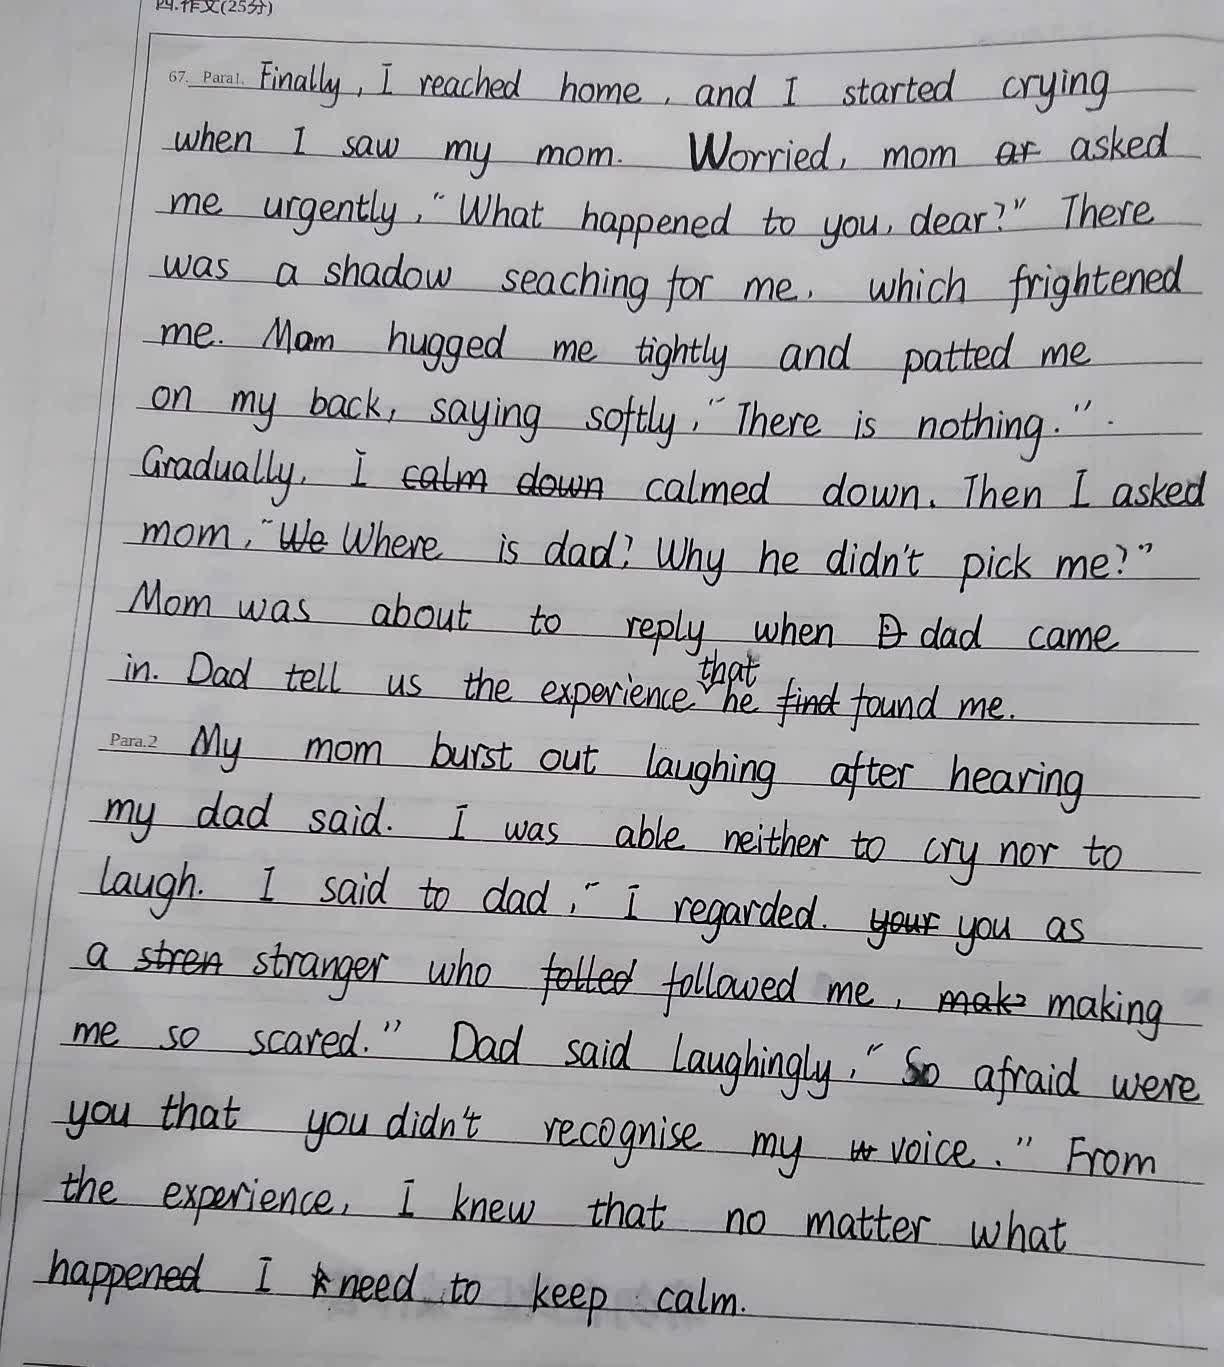 四.作文(25分)
67. Para1. Finally, I reached home, and I started crying
when I saw my mom. Worried, mom ar asked
me urgently, "What happened to you, dear?" There
was a shadow seaching for me, which frightened
me. Mom hugged me tightly and patted me
on my back, saying softly, "There is nothing.".
Gradually, I calm down calmed down. Then I asked
mom, "We Where is dad? Why he didn't pick me?"
Mom was about to reply when D dad came
in. Dad tell us the experience that he find found me.
Para.2 My mom burst out laughing after hearing
my dad said. I was able neither to cry nor to
laugh. I said to dad, "I regarded. your you as
a stren stranger who folled followed me, make making
me so scared." Dad said laughingly, "So afraid were
you that you didn't recognise my w voice." From
the experience, I knew that no matter what
happened I need to keep calm.